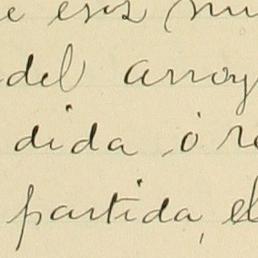 e esos mu
del arroy
dida ó re
partida, el